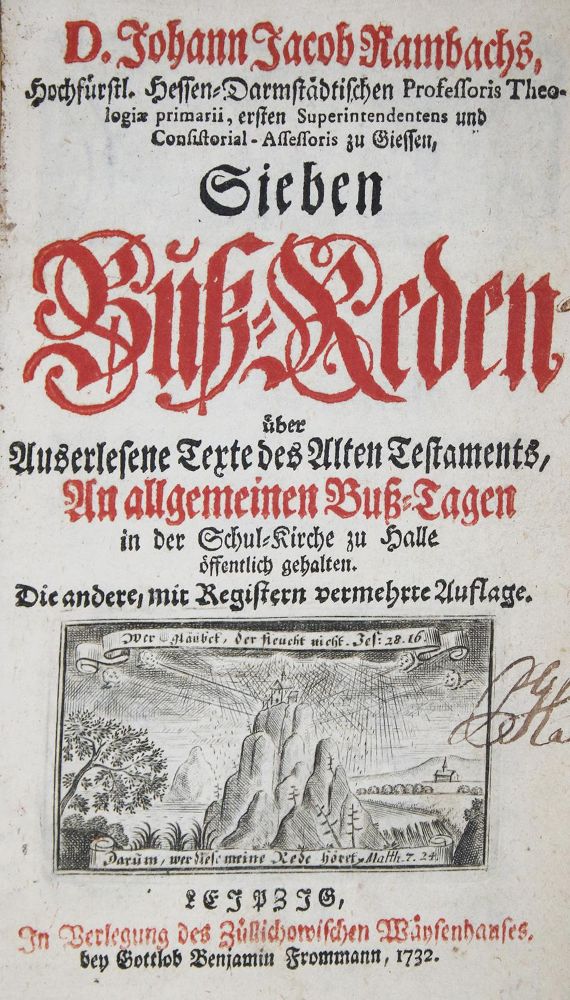 D. Johann Jacob Rambachs,
Hochfürstl. Hessen-Darmstädtischen Professoris Theo-
logiæ primarii, ersten Superintendentens und
Consistorial-Assessoris zu Giessen,
Sieben
Buß-Reden
über
Auserlesene Texte des Alten Testaments,
An allgemeinen Buß-Tagen
in der Schul-Kirche zu Halle
öffentlich gehalten.
Die andere, mit Registern vermehrte Auflage.
Wer gläubet, der fleucht nicht. Jes: 28. 16
Darum, wer diese meine Rede höret. Matth. 7. 24.
LEIPZIG,
In Verlegung des Züllichowischen Wäysenhauses.
bey Gottlob Benjamin Frommann, 1732.